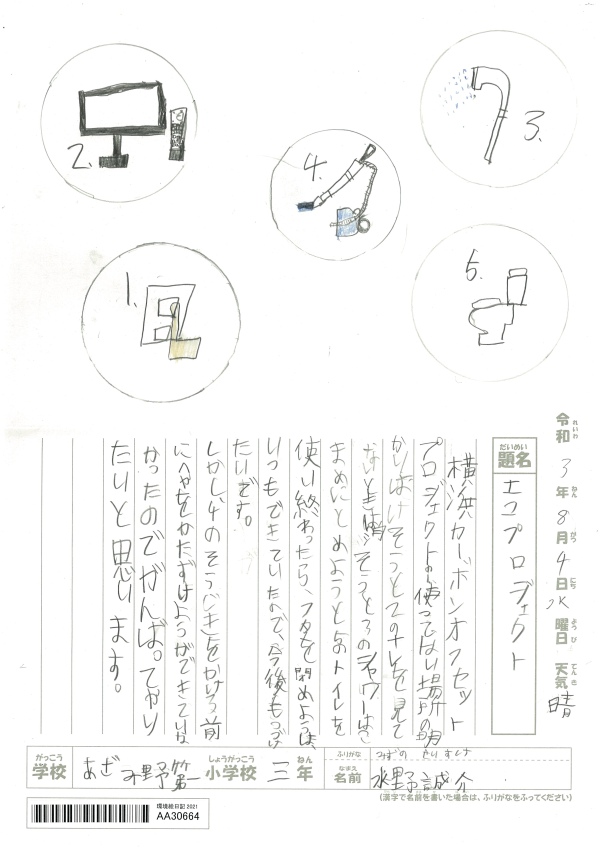 2.
3.
4.
1.
5.
令和 3年 8月 4日 水曜日 天気 晴
れいわ ねん がつ にち ようび てんき
だいめい
題名 エコプロジェクト
横浜カーボンオフセット
プロジェクトの、使ってない場所の明
かりはけそうと2のテレビを見て
ないときは消そうと3のシャワーはこ
まめにとめようと5のトイレを
使い終わったら、フタを閉めようは、
いつもできていたので、今後もつづけ
たいです。
しかし、4のそうじきをかける前
にへやをかたずけようができていな
かったのでがんばってやり
たいと思います。
がっこう しょうがっこう ねん
学校 あざみ野第一 小学校 三年
ふりがな みずの せいすけ
なまえ
名前 水野誠介
(漢字で名前を書いた場合は、ふりがなをふってください)
環境絵日記 2021
AA30664